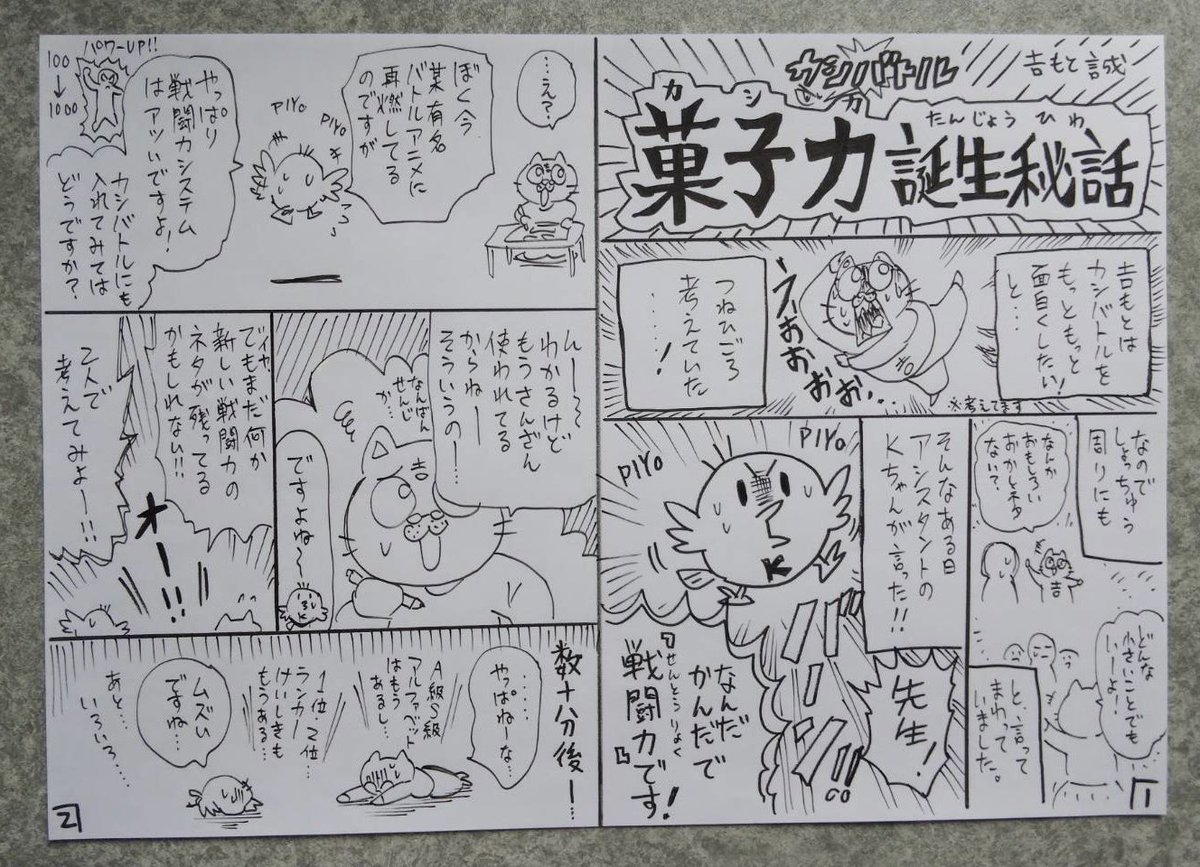 カシバトル
吉もと誠
カシカ
たんじょうひわ
菓子力誕生秘話
吉もとは
カシバトルを
もっともっと
面白くしたい!
と…
うぉおおおお…
※考えてます
つねひごろ
考えていた
……!
なので
しょっちゅう
周りにも
なんか
おもしろい
おかしネタ
ない?
吉
どんな
小さいことでも
いーよ!
と、言って
まわって
いました。
1
そんなある日
アシスタントの
Kちゃんが言った!!
PIYO
PIYO
K
先生!
なんだ
かんだで
せんとうりょく
『戦闘力』です!
…え?
ぼく今
某有名
バトルアニメに
再燃してる
のですが
PIYO
PIYO
やっぱり
戦闘力システム
はアツいですよ!
パワーUP!!
100
↓
1000
カシバトルにも
入れてみては
どうですか?
んー〜
わかるけど
もうさんざん
使われてる
からねー
そういうの…
なんばん
せんじ
か…
吉
ですよね〜
K
でも
まだ何か
新しい戦闘力の
ネタが残ってる
かもしれない!!
2人で
考えてみよー!!
オー!!
数十分後ー…
……
やっぱねーな…
A級S級
アルファベット
はもう
あるし…
1位、2位…
ランカー
けいしきも
もうある…
ムズい
ですね…
あと…
いろいろ…
2